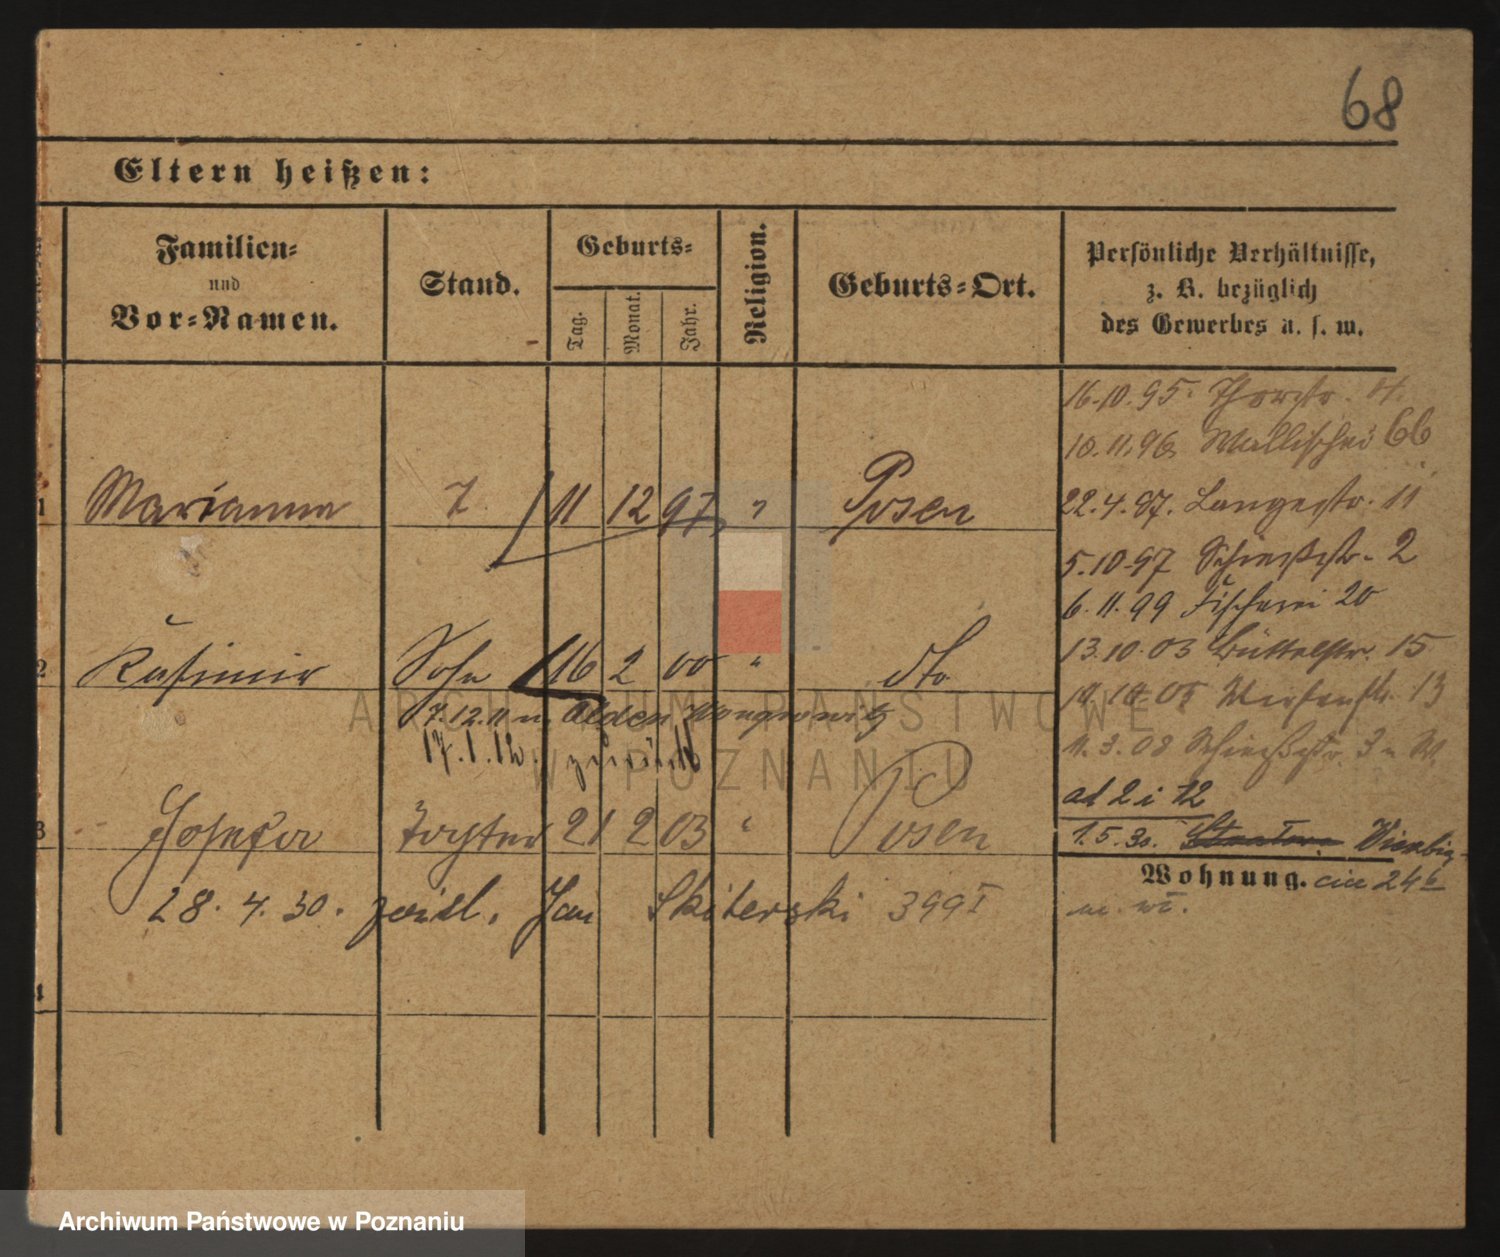 68
Eltern heißen:
Familien=
und
Vor=Namen.
Stand.
Geburts=
Tag.
Monat.
Jahr.
Religion.
Geburts=Ort.
Persönliche Verhältnisse,
z. B. bezüglich
des Gewerbes u. s. w.
16.10.95. Thorstr.
10.11.96 Wallischei 66
1 Marianna T 11 12 97 " Posen
22.4.97. Langestr. 11
5.10.97 Schießstr. 2
6.11.99 Fischerei 20
2 Kasimir Sohn 16 2 00 " dto
13.10.03 Büttelstr. 15
7.12.11 n. Wongrowitz
17.1.12. zurück
Wiesenstr. 13
11.3.08 Schießstr. 3
ad 2 i 12
3 Josefa Tochter 21 2 03 " Posen
1.5.30. Wierbię-
Wohnung. cice 24
28.4.30. Jan Skiterski 399 I
m. w.
4
ARCHIWUM PAŃSTWOWE
W POZNANIU
Archiwum Państwowe w Poznaniu